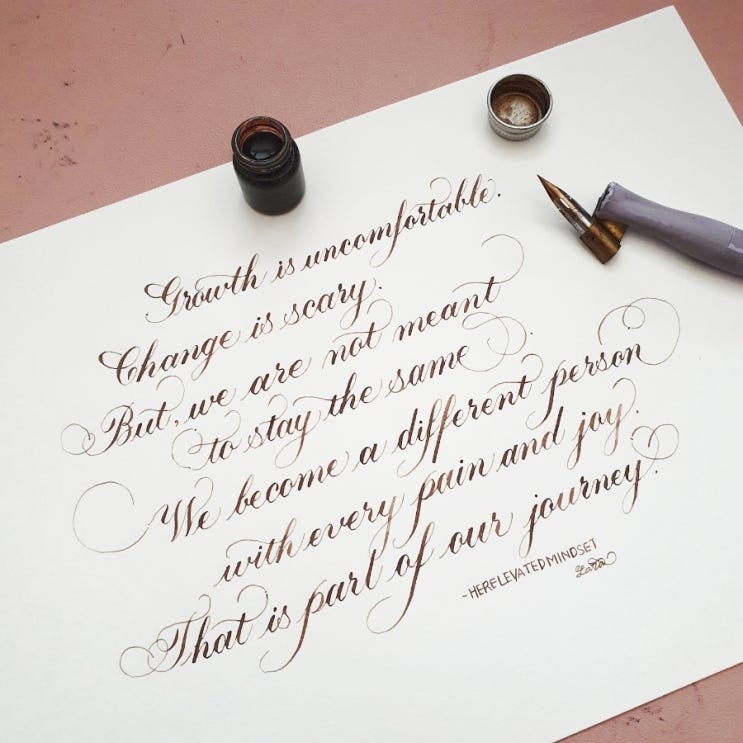 Growth is uncomfortable.
Change is scary.
But, we are not meant
to stay the same.
We become a different person
with every pain and joy.
That is part of our journey.
-HERELEVATEDMINDSET
Zara